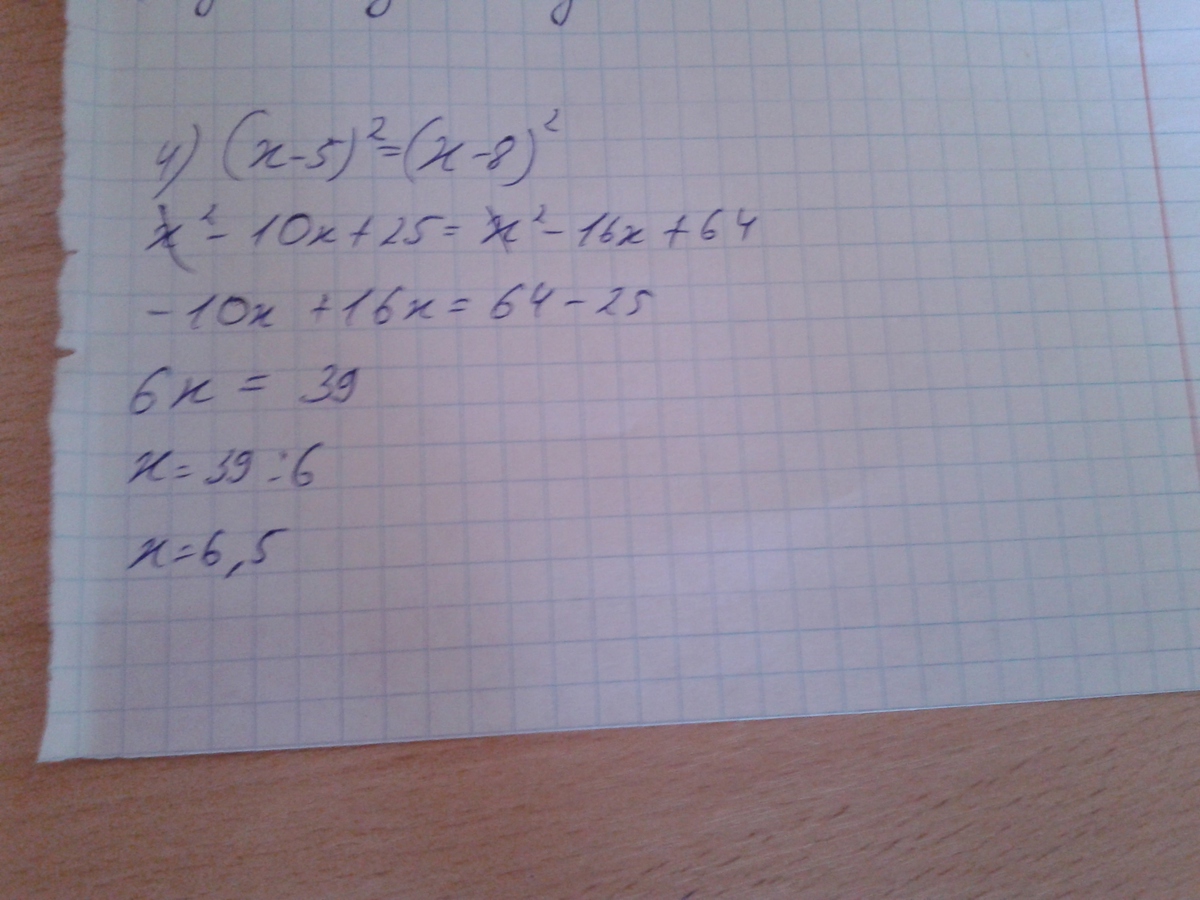 4) (x-5)²=(x-8)²
x²-10x+25=x²-16x+64
-10x+16x=64-25
6x=39
x=39:6
x=6,5